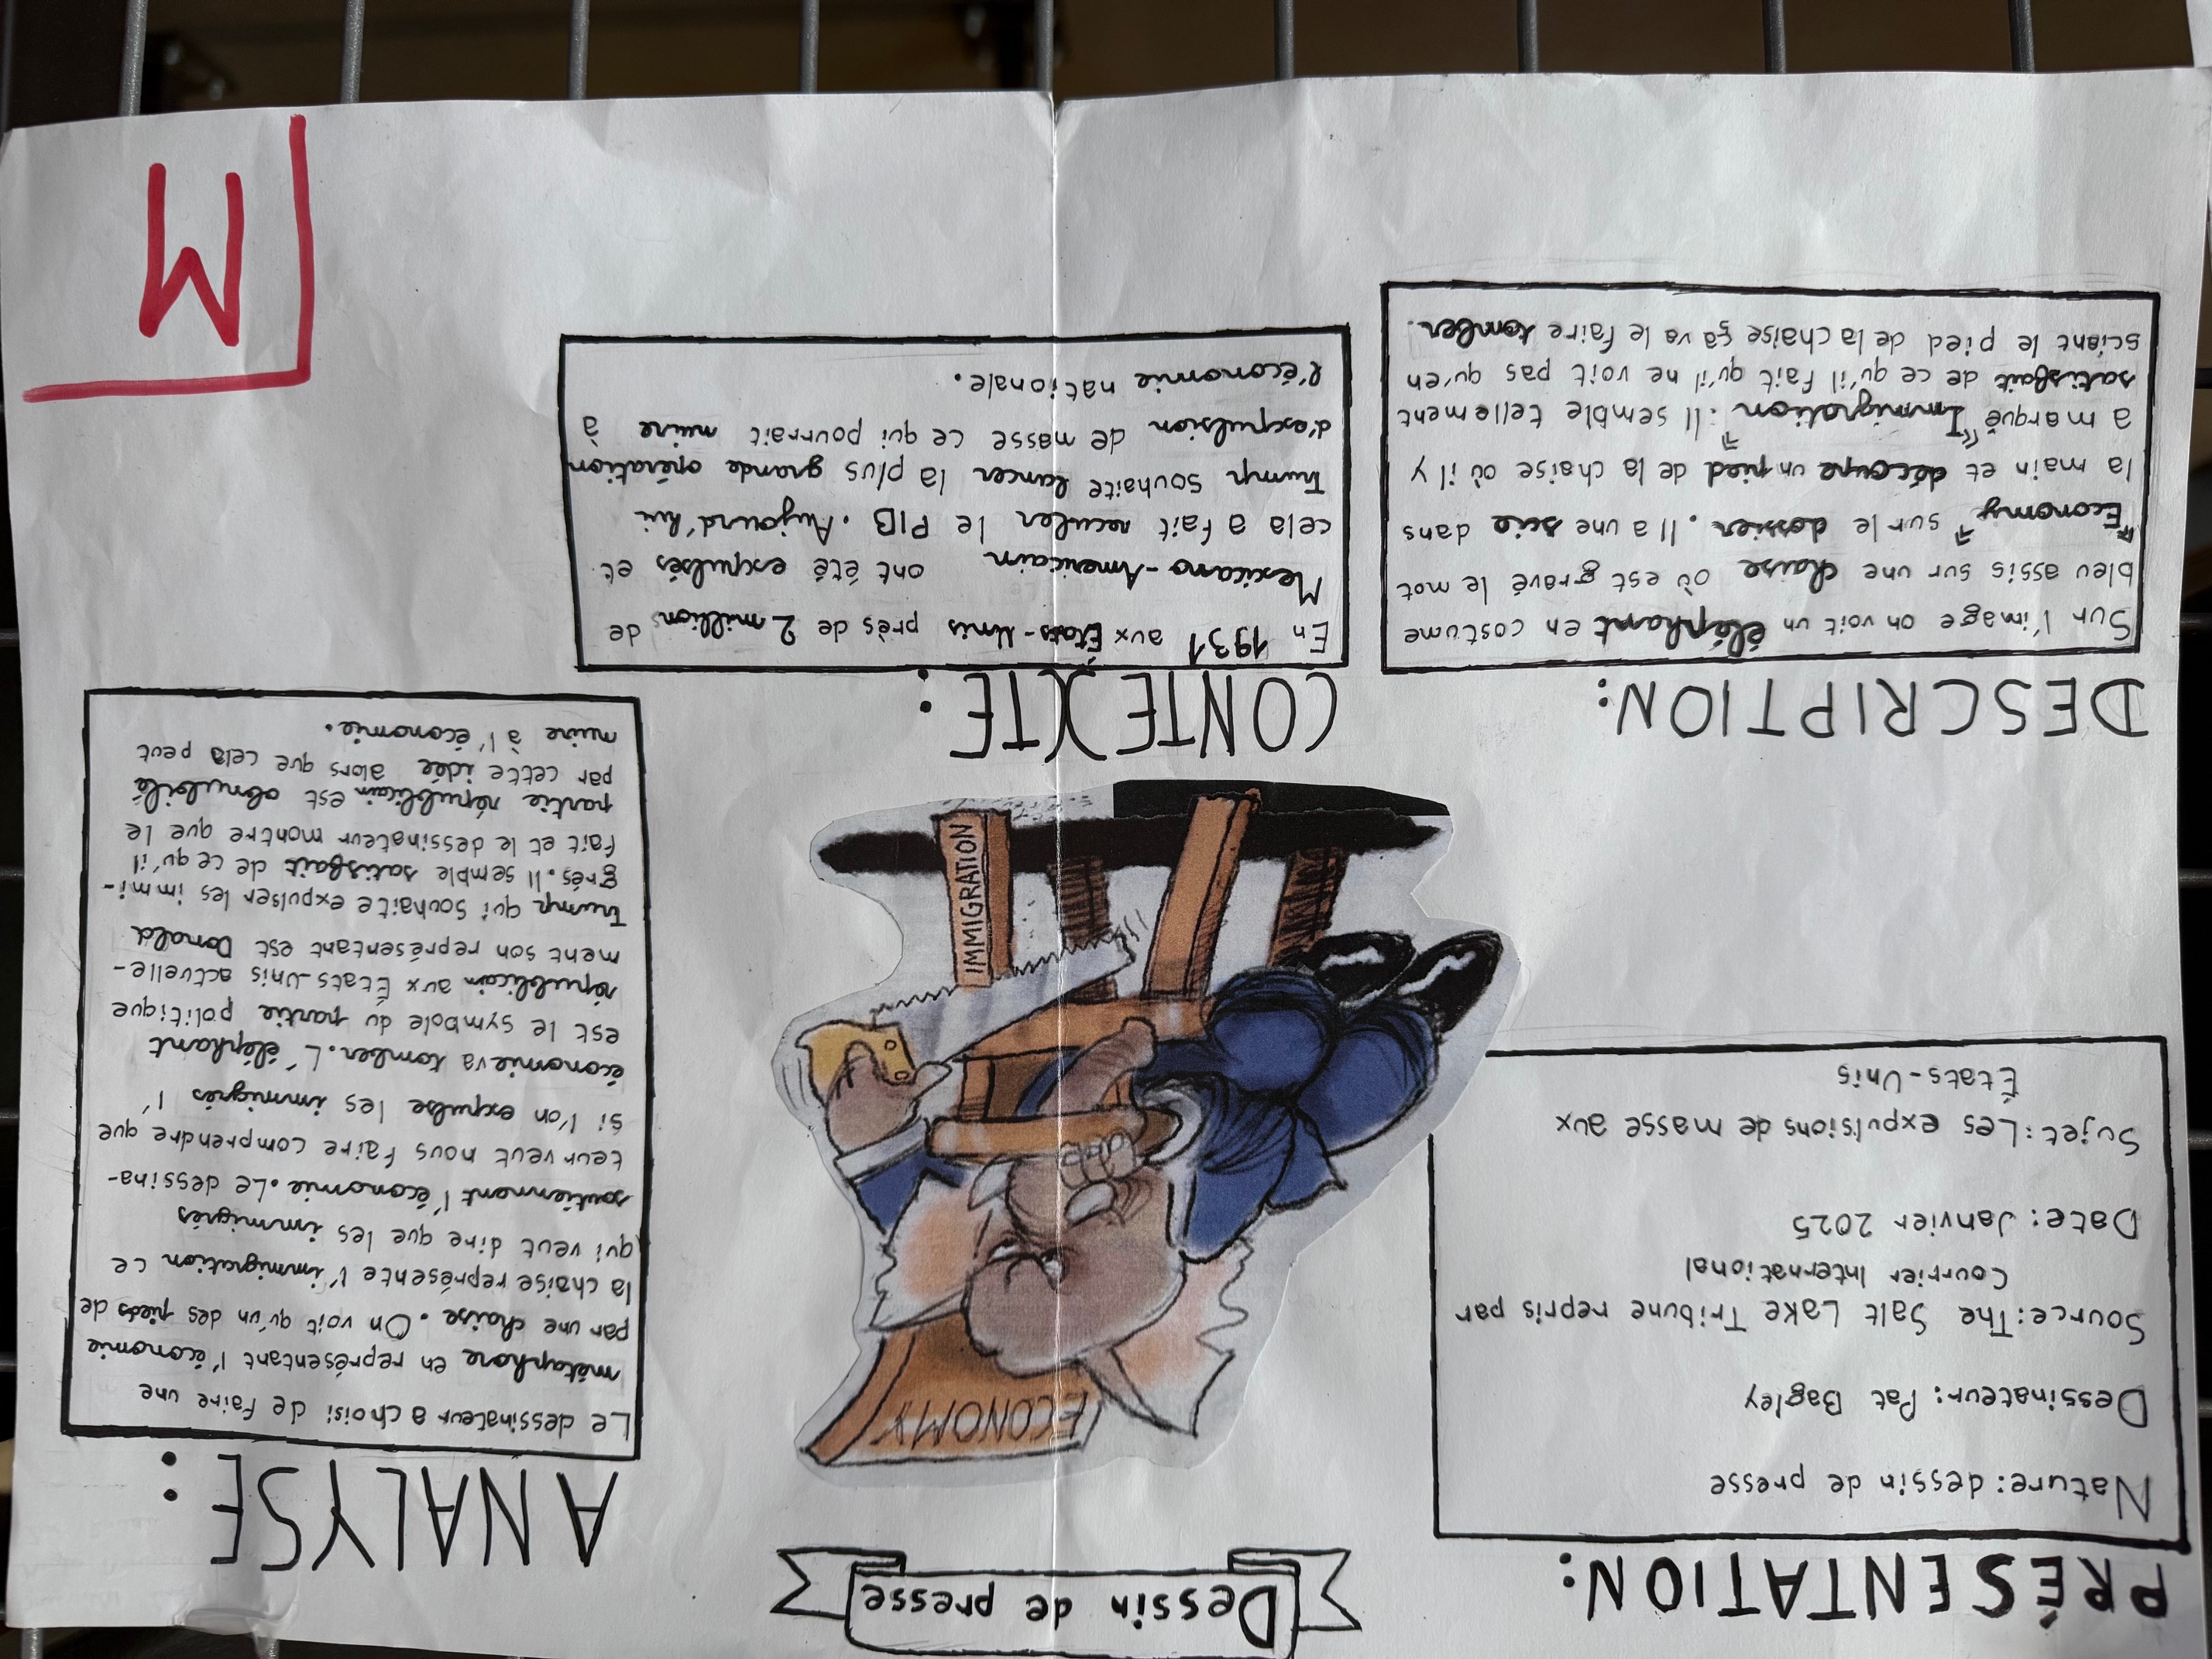 Dessin de presse
PRÉSENTATION:
Nature: dessin de presse
Dessinateur: Pat Bagley
Source: The Salt Lake Tribune repris par
Courrier International
Date: Janvier 2025
Sujet: Les expulsions de masse aux
États-Unis
DESCRIPTION:
Sur l'image on voit un éléphant en costume
bleu assis sur une chaise où est gravé le mot
"Economy" sur le dossier. Il a une scie dans
la main et découpe un pied de la chaise où il y
a marqué "Immigration". Il semble tellement
satisfait de ce qu'il fait qu'il ne voit pas qu'en
sciant le pied de la chaise ça va le faire tomber.
ECONOMY
IMMIGRATION
CONTEXTE:
En 1931 aux États-Unis près de 2 millions de
Mexicano-Americain ont été expulsés et
cela a fait reculer le PIB. Aujourd'hui
Trump souhaite lancer la plus grande opération
d'expulsion de masse ce qui pourrait nuire à
l'économie nationale.
ANALYSE:
Le dessinateur a choisi de faire une
métaphore en représentant l'économie
par une chaise. On voit qu'un des pieds de
la chaise représente l'immigration ce
qui veut dire que les immigrés
soutiennent l'économie. Le dessina-
teur veut nous faire comprendre que
si l'on expulse les immigrés l'
économie va tomber. L'éléphant
est le symbole du partie politique
républicain aux États-Unis actuelle-
ment son représentant est Donald
Trump qui souhaite expulser les immi-
grés. Il semble satisfait de ce qu'il
fait et le dessinateur montre que le
partie républicain est obnubilé
par cette idée alors que cela peut
nuire à l'économie.
M